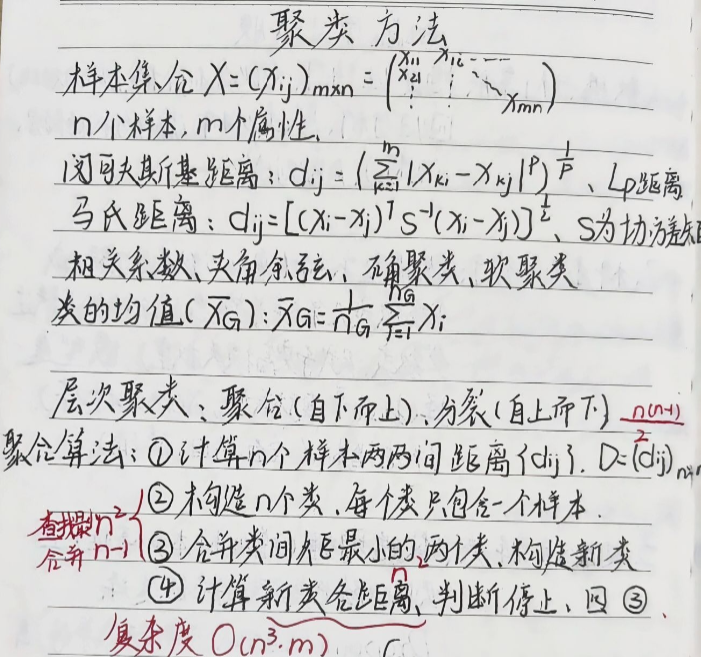 聚类方法
样本集合 X = (x_ij)_{m×n} = (x11 x12 ---- x21 ⋮ ⋮ ⋱ xmn)
n个样本, m个属性、
闵可夫斯基距离: d_ij = (∑_{k=1}^{m} |x_ki - x_kj|^p)^{1/p}、Lp距离
马氏距离: d_ij = [(x_i - x_j)^T S^{-1} (x_i - x_j)]^{1/2}、S为协方差矩
相关系数、夹角余弦、硬聚类、软聚类
类的均值(x̄_G): x̄_G = 1/n_G ∑_{i=1}^{n_G} x_i
层次聚类: 聚合(自下而上)、分裂(自上而下) n(n-1)/2
聚合算法: ① 计算n个样本两两间距离{d_ij}. D=(d_ij)_{n×n}
② 构造n个类、每个类只包含一个样本.
查找最 n²
合并 n-1
③ 合并类间距最小的两个类、构造新类
④ 计算新类各距离、判断停止、回③. n²
复杂度 O(n³·m)